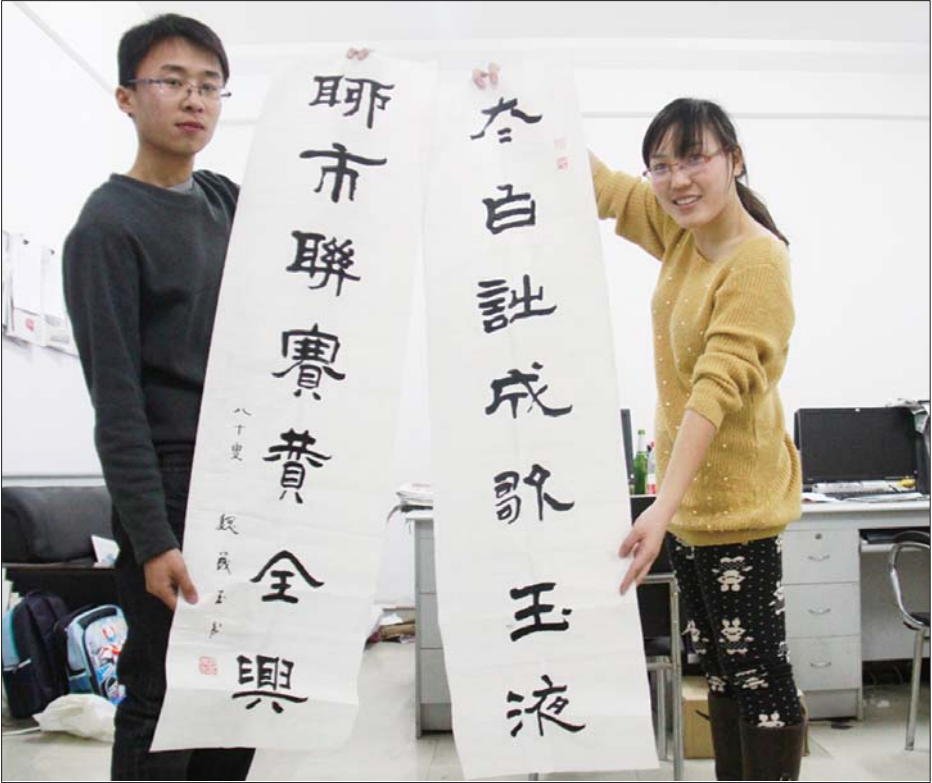 太白詩成歌玉液
聊市聯賽賛全興
八十叟 魏 玉书